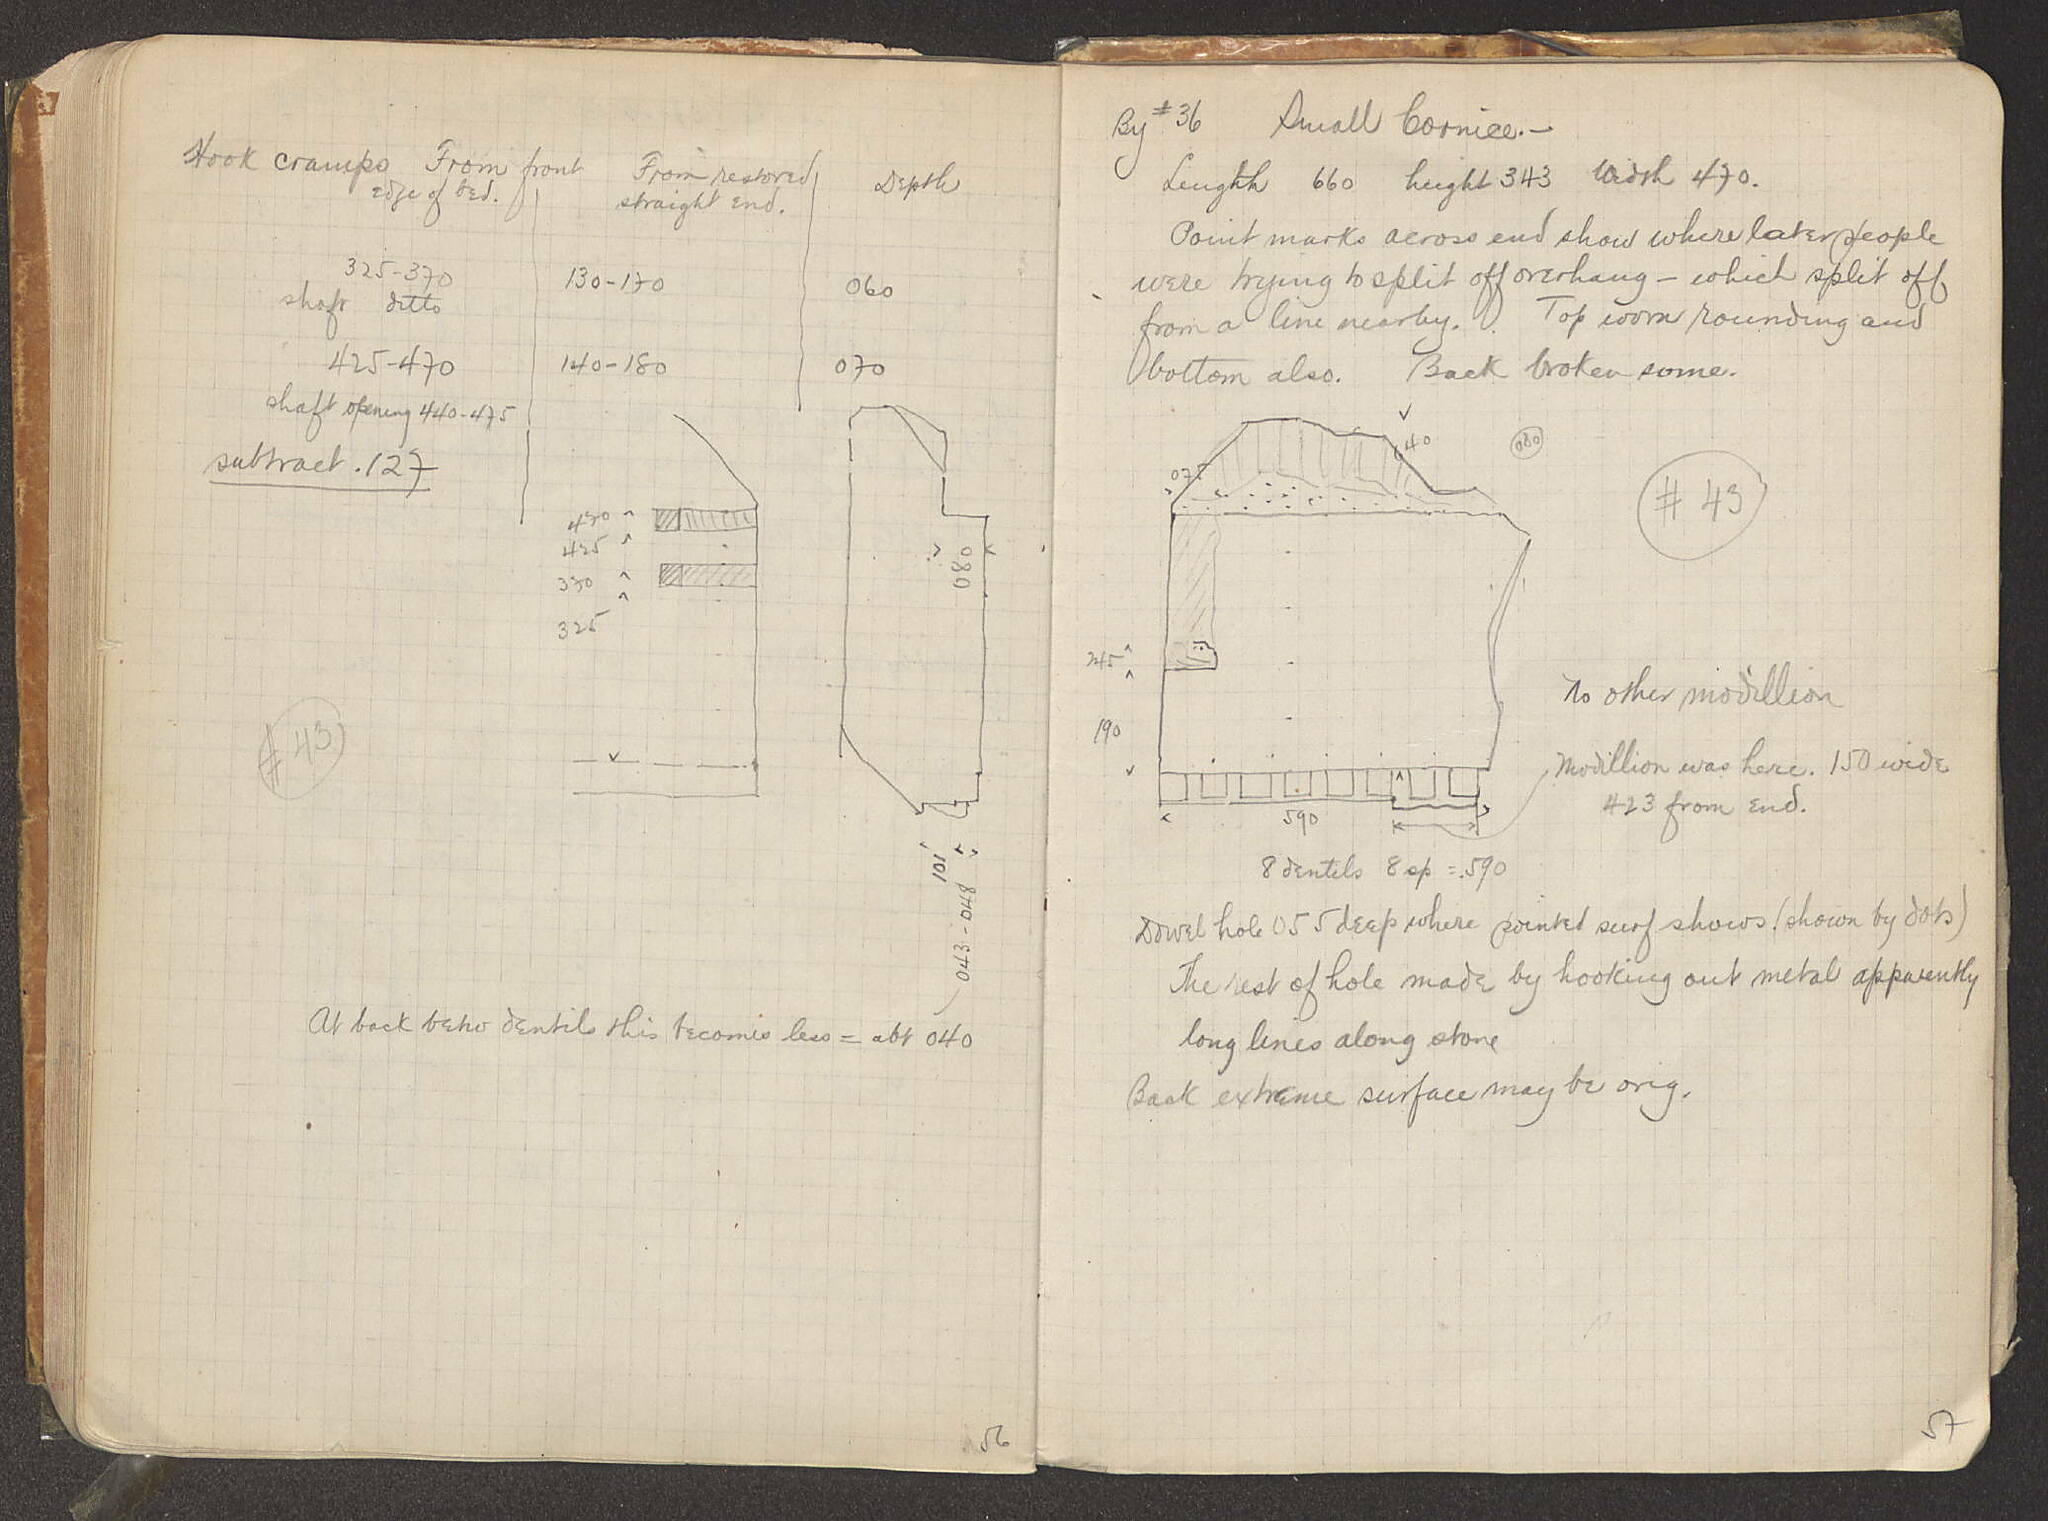 Hook cramps From front From restored Depth
edge of bed. straight end.
325-370 130-170 060
shaft ditto
425-470 140-180 070
shaft opening 440-475
subtract .127
470
425
370
325
080
# 43
101
043-048
At back betw dentils this becomes less = abt 040
56
By #36 Small Cornice.—
Length 660 height 343 width 470.
Point marks across end show where later people
were trying to split off overhang — which split off
from a line nearby. Top worn rounding and
bottom also. Back broken some.
040
080
075
# 43
245
190
To other modillion
Modillion was here. 150 wide
423 from end.
590
8 dentils 8 sp = .590
Dowel hole 055 deep where pointed surf shows. (shown by dots)
The rest of hole made by hooking out metal apparently
long lines along stone
Back extreme surface may be orig.
57